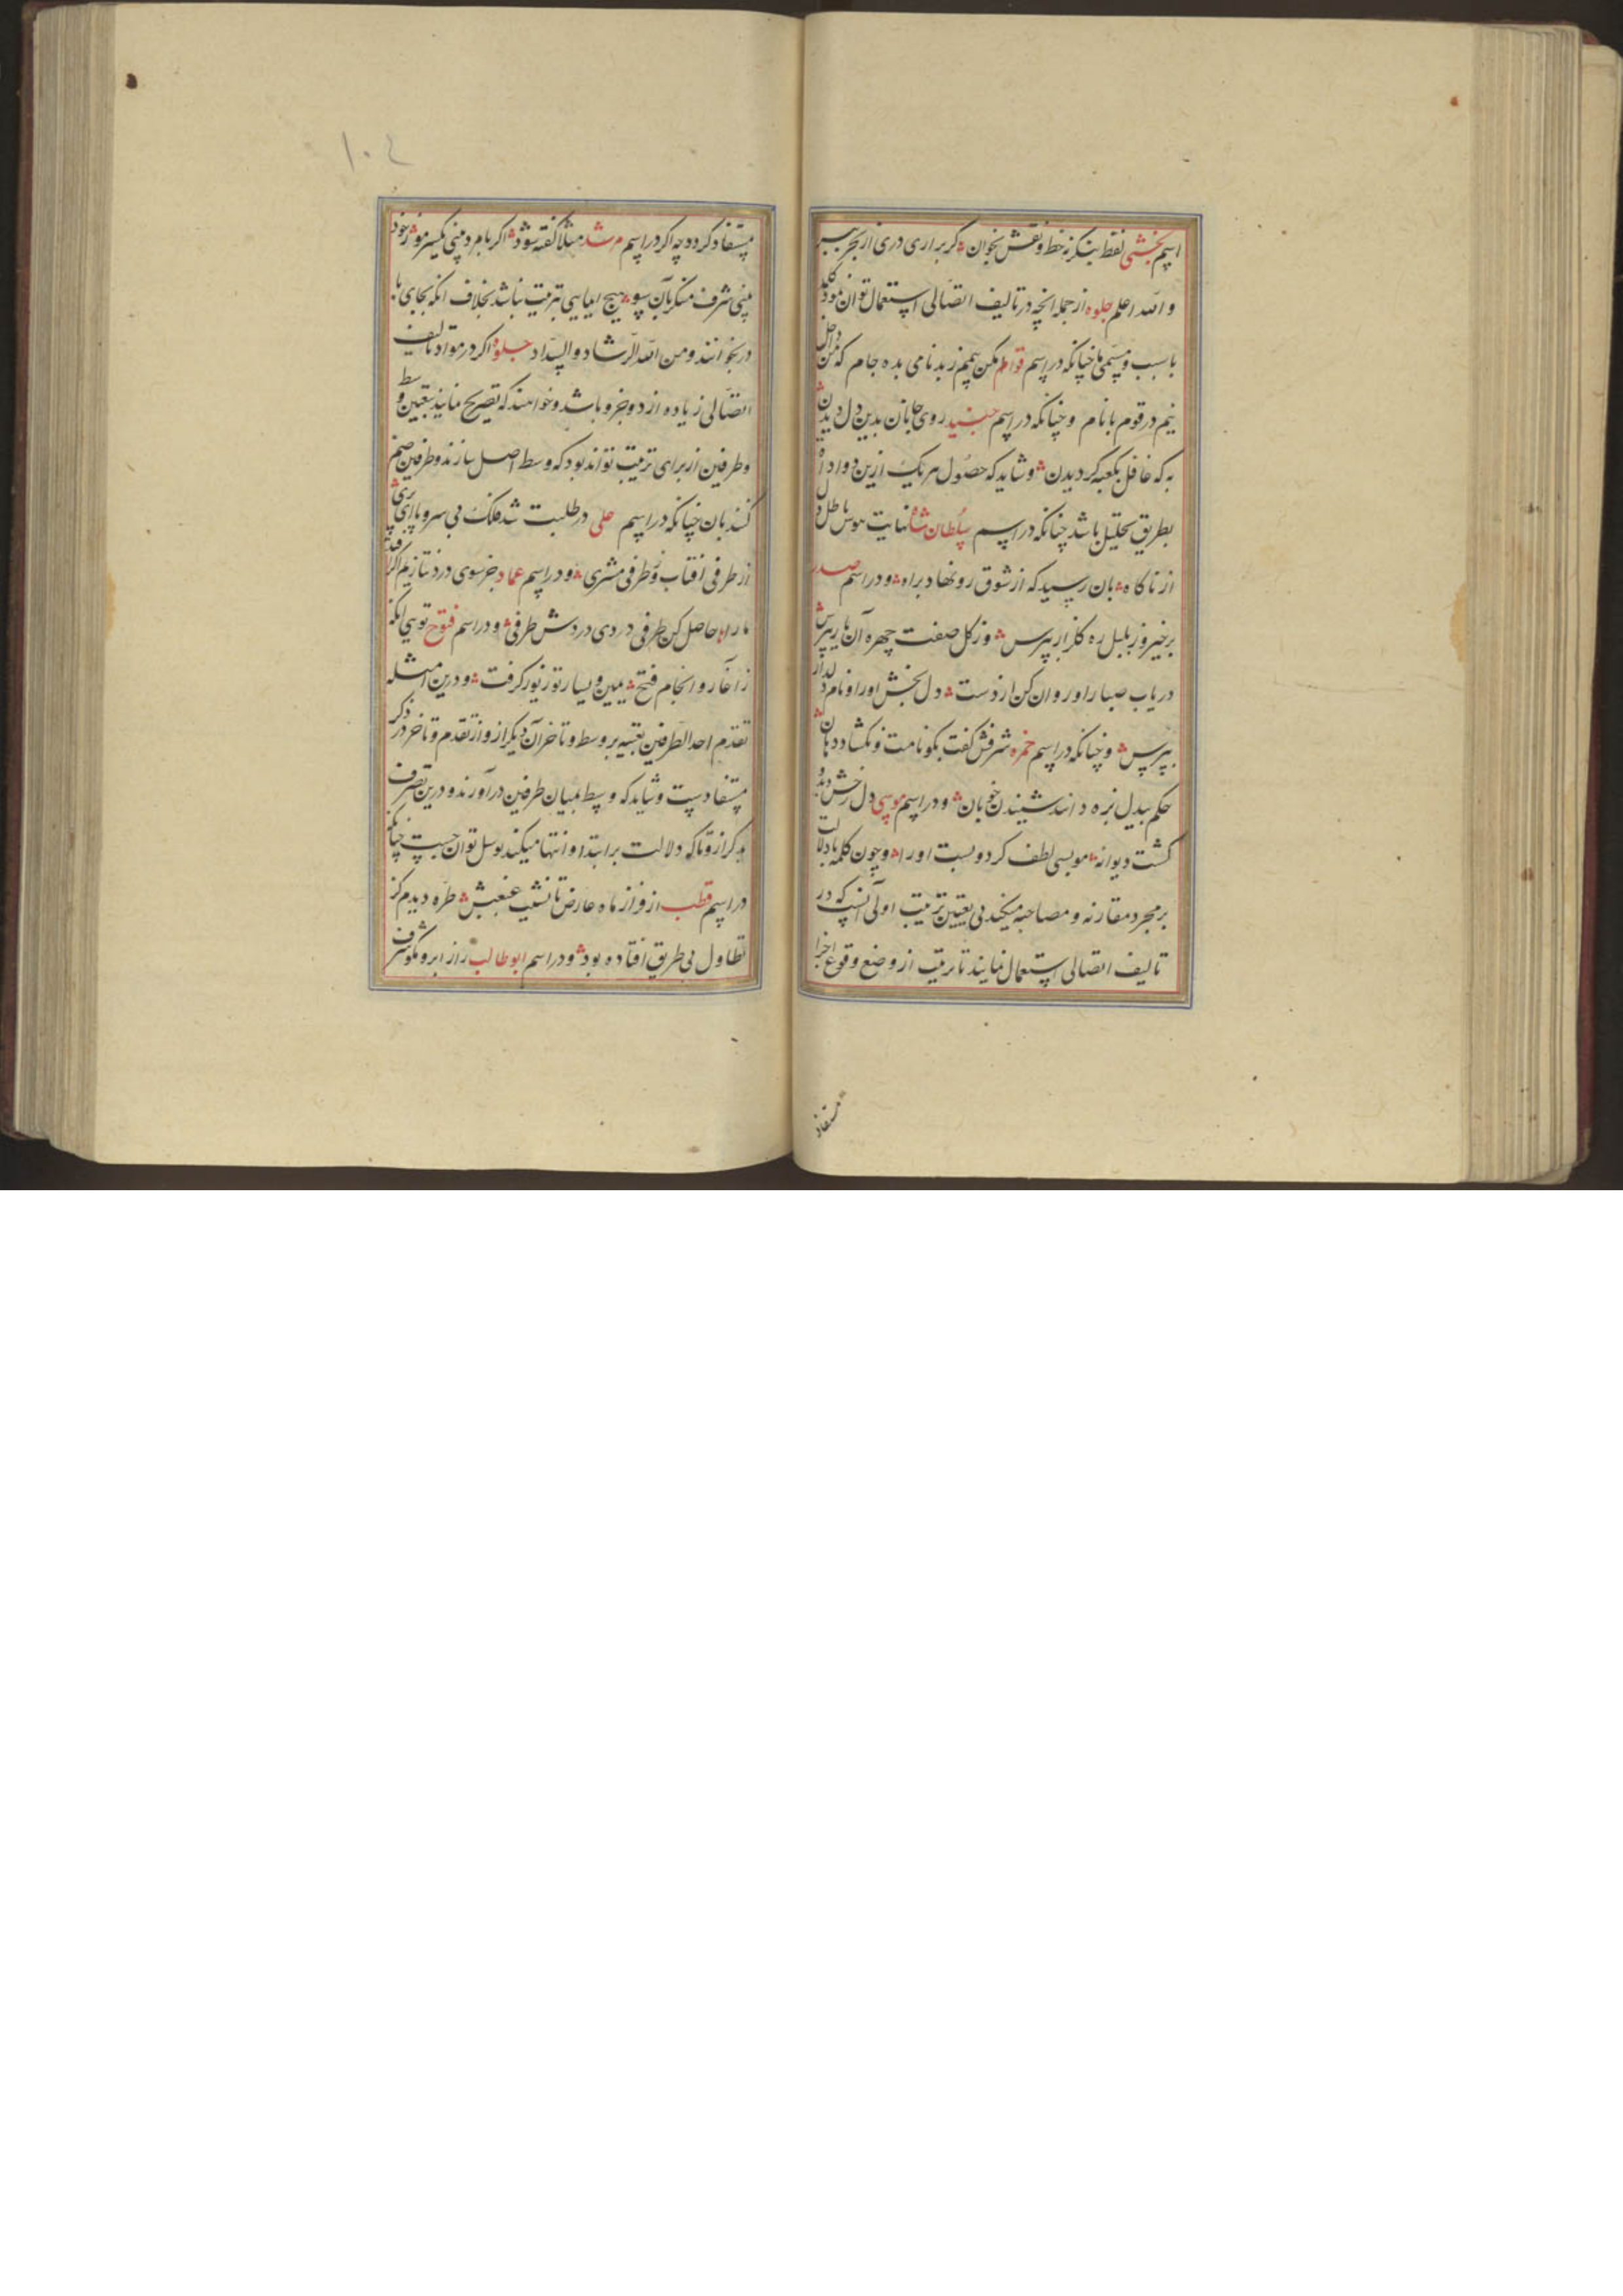 اسم بخشی نقط بنکر ز خط و نقش بخوان گر برآری دری از بحر
والله اعلم جلوه از جمله انچه در تالیف اتصالی استعمال توان نمود کلمه
با سبب و مسمی ما چنانکه در اسم قوام مکن بیم ز بدنامی بده جام که داخل
نیم در قوم با نام و چنانکه در اسم جنید روی جانان بدین دل دیدن
به که غافل بکعبه گردیدن و شاید که حصول هر یک ازین دو ادا
بطریق تحلیل باشد چنانکه در اسم سلطان شاه نهایت هوس باطل
از ناکاه بان رسید که از شوق رو نهاد براه و در اسم صدر
برخیز و ز بلبل ره گلزار بپرس وز گل صفت چهره آن یار بپرس
دریاب صبا را و روان کن از دست دل بخش او را و نام دلدار
بپرس و چنانکه در اسم حمزه شرفش گفت بکو نامت و نکشاد دهان
حکم بیدل نبره دانند شنیدن خوبان و در اسم موسی دل رخش دید و
کشت دیوانه مو بسی لطف کرد و بست او را و چون کلمه با دلالت
بر مجرد مقارنه و مصاحبه میکند بی تعیین ترتیب اولی آنست که در
تالیف اتصالی استعمال نمایند تا ترتیب از وضع وقوع اجزا
مستفاد
۱۰۴
مستفاد کردد چه اگر در اسم مرشد مثلا گفته شود اگر بام
بینی شرف منکر بآن سو هیچ ایمایی بترتیب نباشد بخلاف انکه بجای با
در بخوانند و من الله الرشاد والسداد جلوه اکر در مواد تالیف
اتصالی زیاده از دو جزو باشد و خواهند که تصریح نمایند بتعیین وسط
و طرفین از برای ترتیب تواند بود که وسط اصل سازند و طرفین ضم
کنند بان چنانکه در اسم علی در طلبت شد فلک بی سر و پا
از طرفی افتاب و طرفی مشتری و در اسم عماد جز سوی درد نتازیم اکر
ما را حاصل کن طرفی دردی دردش طرفی و در اسم فتوح تویی انکه
ز آغاز و انجام فتح یمین و یسار تو زیور کرفت و درین امثله
تقدم احد الطرفین تعبیه بر وسط و تاخر آن دیگر ازو از تقدم و تاخر در ذکر
مستفادست و شاید که وسط بمیان طرفین درآورند و درین تصرف
بذکر از و تا که دلالت بر ابتدا و انتها میکند توسل توان جست چنانکه
در اسم قطب از فراز ماه عارض تا نشیب غبغبش طره دیدم کز
تطاول بی طریق افتاده بود و در اسم ابو طالب راز ابرو مکو شرف